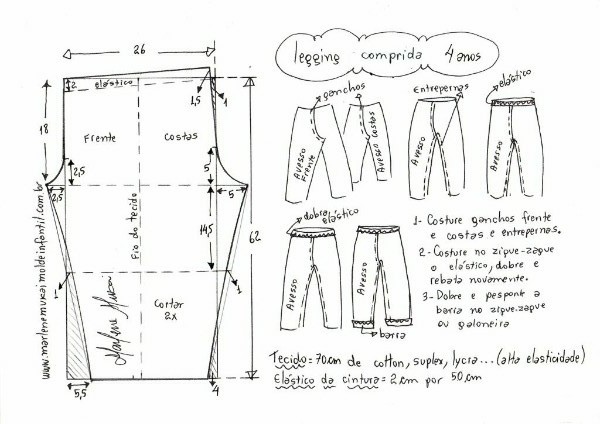 legging comprida 4 anos
26
2
elástico
1,5
1
18
Frente
Costas
2,5
5
2,5
5
Fio do tecido
14,5
62
1
1
Cortar
2x
Marlene Mukai
5,5
4
www.marlenemukaimoldeinfantil.com.br
ganchos
Avesso
Frente
Avesso Costas
Entrepernas
Avesso
elástico
Avesso
dobra elástico
Avesso
Avesso
barra
1- Costure ganchos frente
e costas e entrepernas.
2- Costure no zigue-zague
o elástico, dobre e
rebata novamente.
3- Dobre e pesponte a
barra no zigue-zague
ou galoneira
Tecido = 70cm de cotton, suplex, lycra... (alta elasticidade)
Elástico da cintura = 2 cm por 50 cm